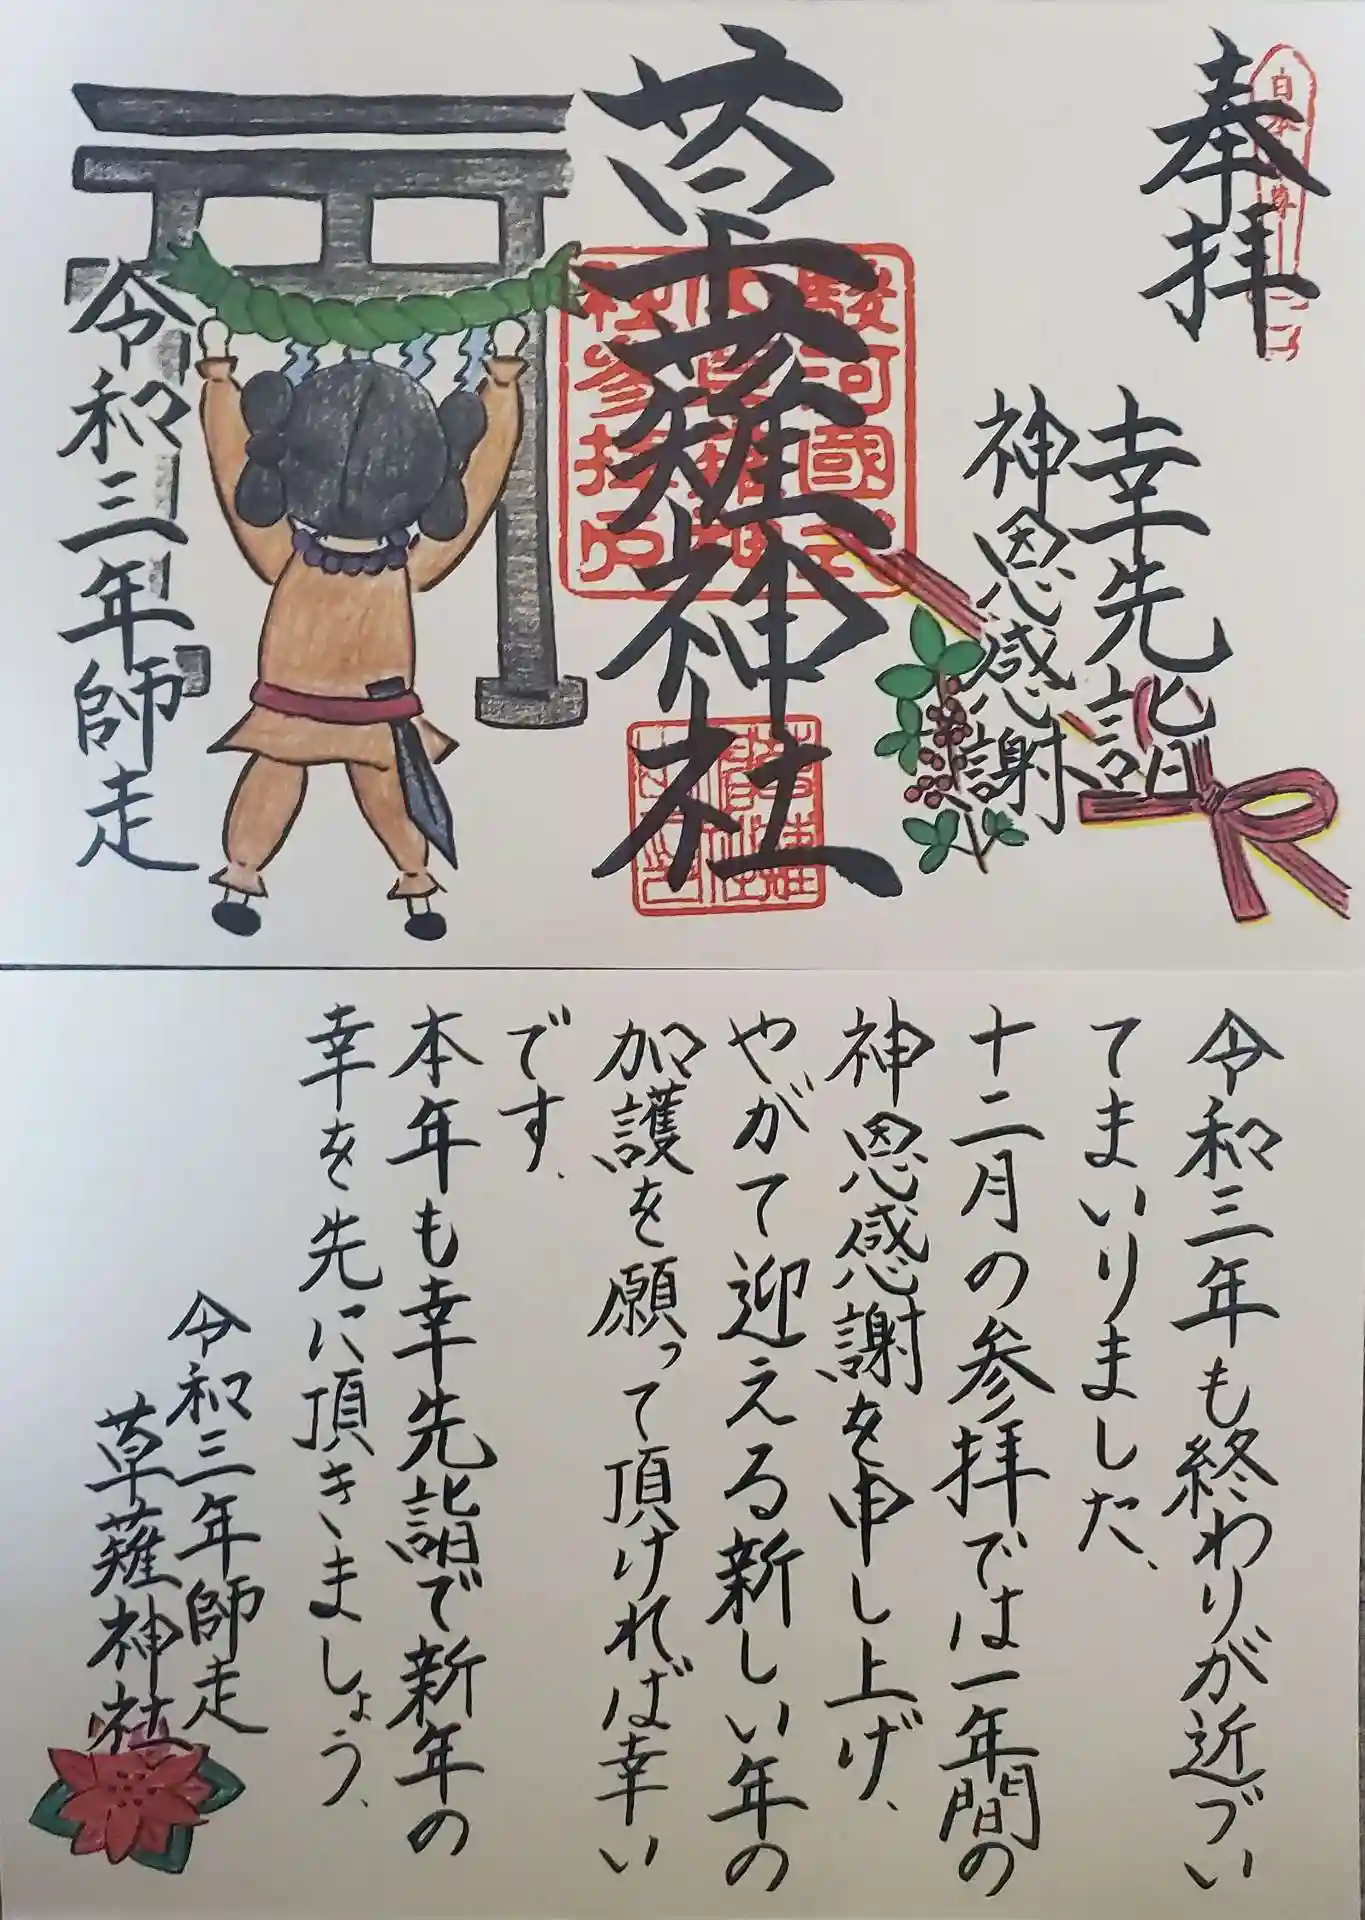 奉拝
幸先詣
神恩感謝
草薙神社
令和三年師走
令和三年も終わりが近づい
てまいりました、
十二月の参拝では一年間の
神恩感謝を申し上げ、
やがて迎える新しい年の
加護を願って頂ければ幸い
です、
本年も幸先詣で新年の
幸を先に頂きましょう、
令和三年師走
草薙神社